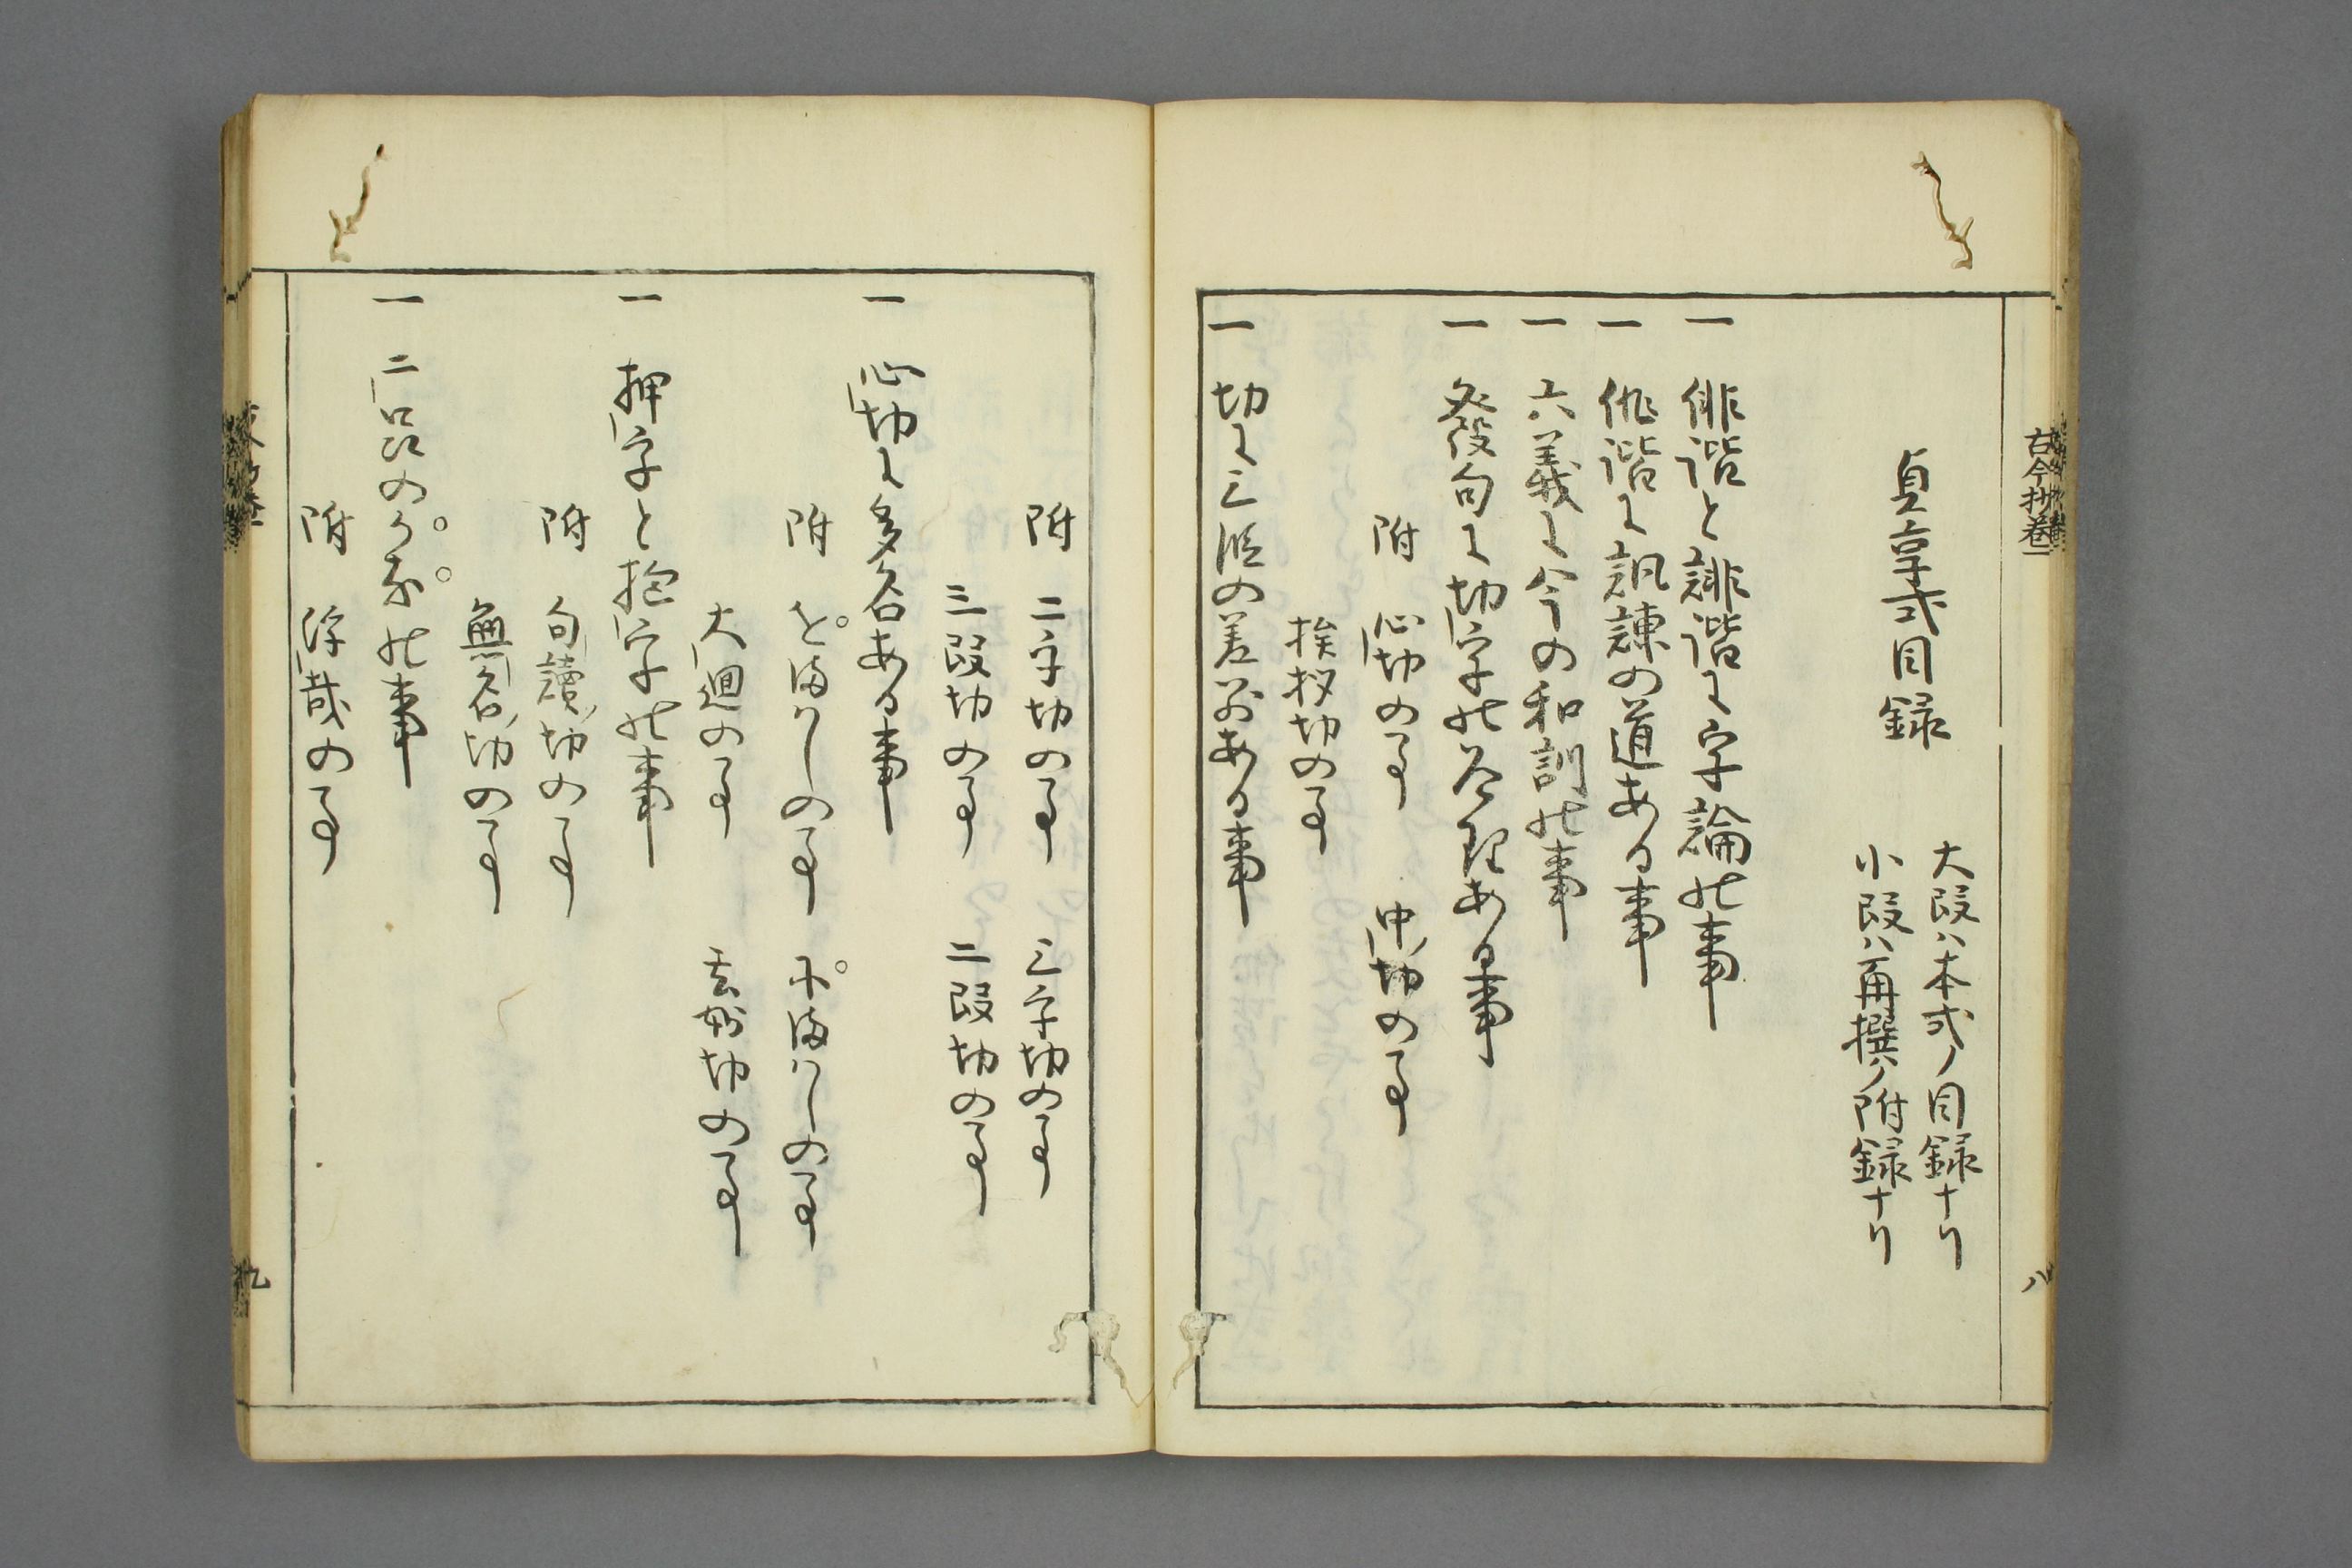 古今抄巻一
八
貞享式目録
大段ハ本式ノ目録ナリ
小段ハ再撰ノ附録ナリ
一 俳諧と誹諧に字論の事
一 俳諧に諷諫の道ある事
一 六義に今の和訓の事
一 發句に切字の名理ある事
附 心切の事 中切の事
挨拶切の事
一 切に三段の差別ある事
附 二字切の事 三字切の事
三段切の事 二段切の事
一 心切に多名ある事
附 を廻しの事 に廻しの事
大廻の事 玄妙切の事
一 押字と抱字の事
附 句讀切の事
無名切の事
一 二品のうかの事
附 浮哉の事
九